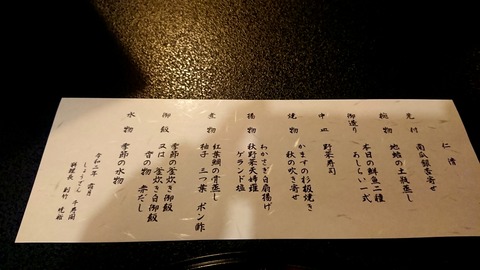 仁 清
先付 南瓜銀杏寄せ
椀物 地蛤の土瓶蒸し
御造り 本日の鮮魚二種
あしらい一式
中皿 野菜寿司
焼物 かますの杉板焼き
秋の吹き寄せ
揚物 わかさぎ白扇揚げ
秋野菜天婦羅
ゲランド塩
煮物 紅葉鯛の骨蒸し
柚子 三つ葉 ポン酢
御飯 季節の釜炊き御飯
又は 釜炊き白御飯
香の物 赤だし
水物 季節の水物
令和二年 霜月
しょうざん 千寿閣
料理長